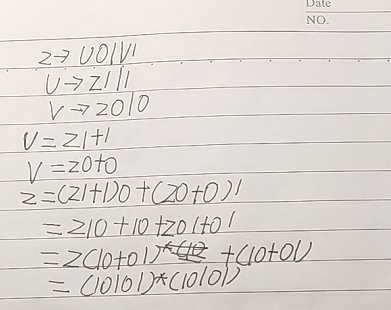 Date
NO.
Z→U0|V1
U→Z1|1
V→Z0|0
U=Z1+1
V=Z0+0
Z=(Z1+1)0+(Z0+0)1
=Z10+10+Z01+01
=Z(10+01) +(10+01)
=(10|01)*(10|01)